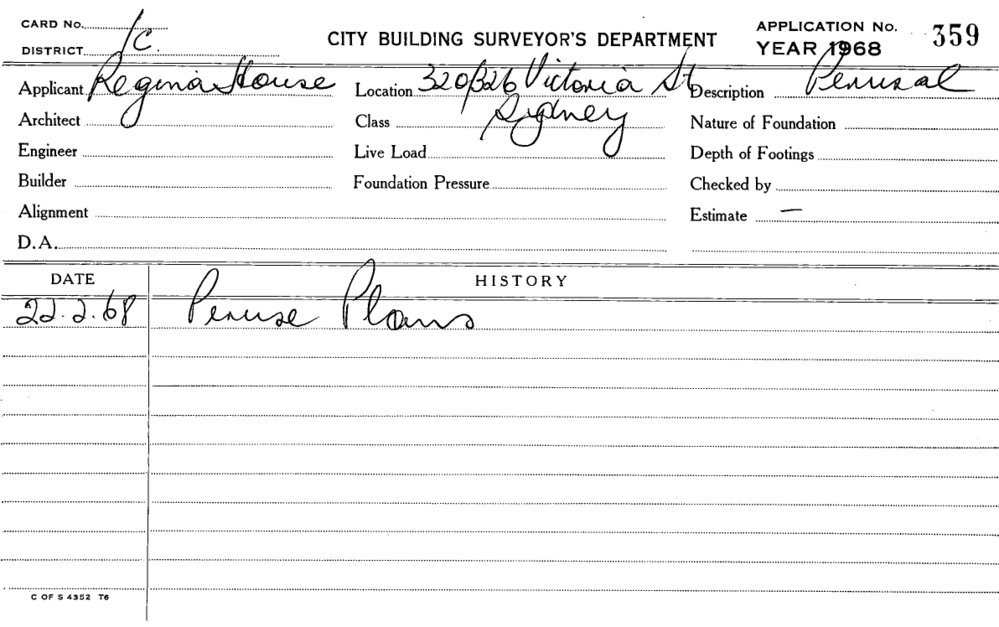 CARD No.
DISTRICT 1C.
CITY BUILDING SURVEYOR'S DEPARTMENT
APPLICATION No. 359
YEAR 1968
Applicant Regina House Location 320/326 Victoria St Description Perusal
Architect Class Sydney Nature of Foundation
Engineer Live Load Depth of Footings
Builder Foundation Pressure Checked by
Alignment Estimate —
D.A.
DATE HISTORY
22.2.68 Peruse Plans
C OF S 4352 T6